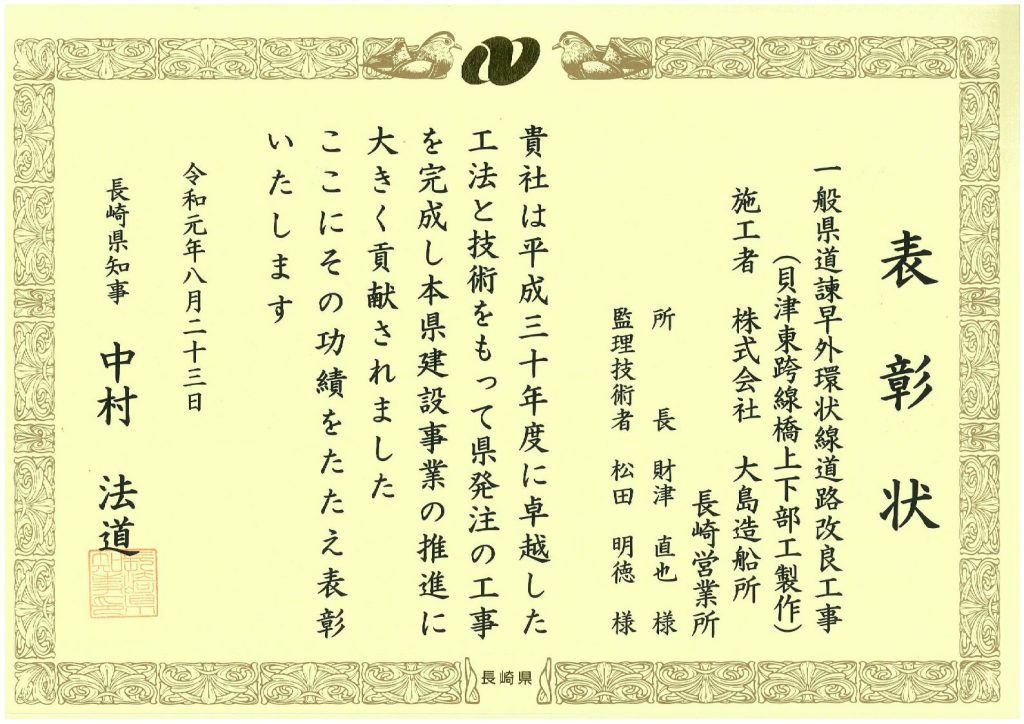 表彰状
一般県道諫早外環状線道路改良工事
(貝津東跨線橋上下部工製作)
施工者 株式会社 大島造船所
長崎営業所
所長 財津 直也 様
監理技術者 松田 明徳 様
貴社は平成三十年度に卓越した
工法と技術をもって県発注の工事
を完成し本県建設事業の推進に
大きく貢献されました
ここにその功績をたたえ表彰
いたします
令和元年八月二十三日
長崎県知事 中村 法道
長崎県